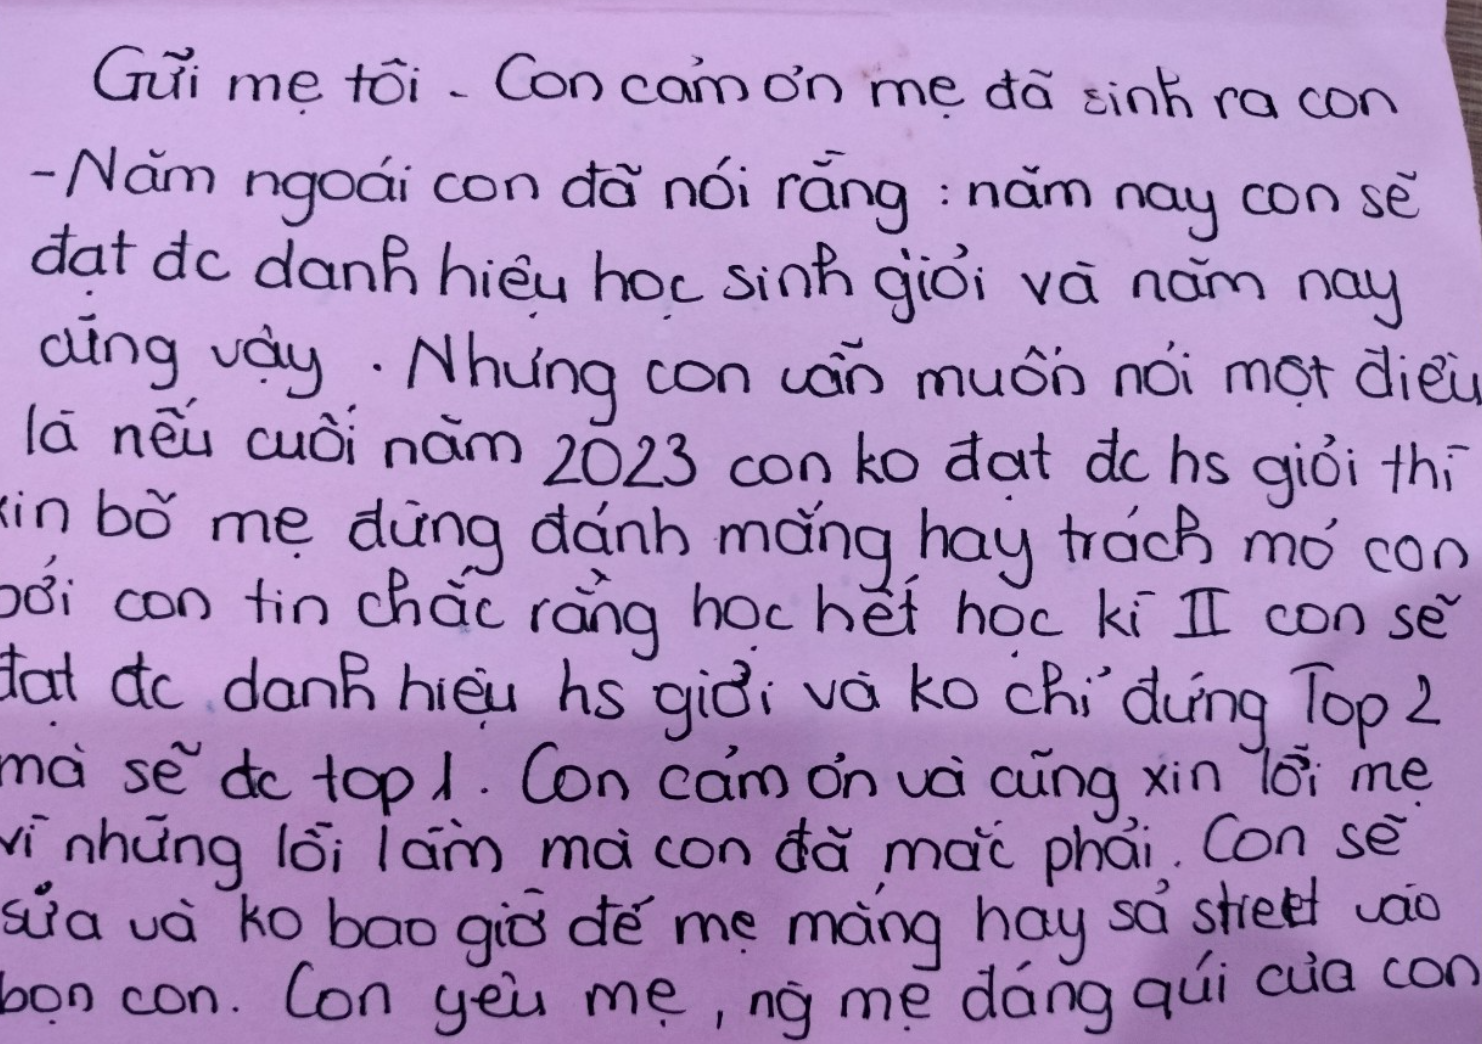 Gửi mẹ tôi - Con cảm ơn mẹ đã sinh ra con
- Năm ngoái con đã nói rằng : năm nay con sẽ
đạt đc danh hiệu học sinh giỏi và năm nay
cũng vậy. Nhưng con vẫn muốn nói một điều
là nếu cuối năm 2023 con ko đạt đc hs giỏi thì
xin bố mẹ đừng đánh mắng hay trách mó con
bởi con tin chắc rằng học hết học kì II con sẽ
đạt đc danh hiệu hs giỏi và ko chỉ đứng Top 2
mà sẽ đc top 1. Con cảm ơn và cũng xin lỗi mẹ
vì những lỗi lầm mà con đã mắc phải. Con sẽ
sửa và ko bao giờ để mẹ mắng hay sả street vào
bọn con. Con yêu mẹ, ng mẹ đáng quí của con